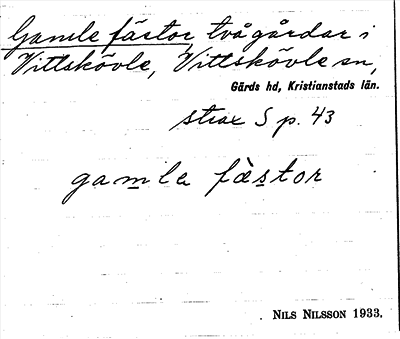 Gamle fästor, två gårdar i
Vittskövle, Vittskövle sn,
Gärds hd, Kristianstads län.
strax S p. 43
gamla fästor
NILS NILSSON 1933.